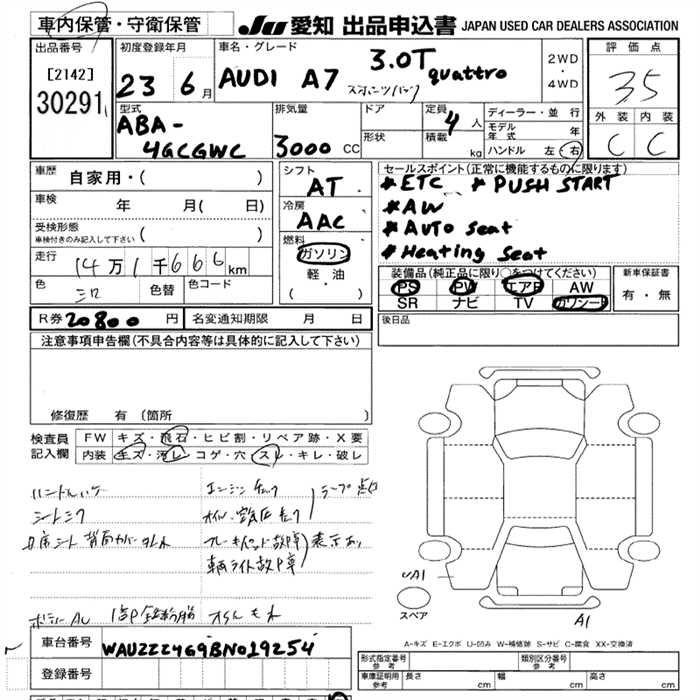 車内保管・守衛保管
JU 愛知 出品申込書 JAPAN USED CAR DEALERS ASSOCIATION
出品番号
[2142]
30291
初度登録年月
23 6月
車名・グレード
AUDI A7 3.0T quattro
スポーツバック
2WD
・
4WD
評価点
3.5
外装 内装
C C
型式
ABA-
4GCGWC
排気量
3000 CC
ドア
形状
定員 4人
積載 kg
ディーラー・並行
モデル年式 年
ハンドル 左・右
車歴 自家用・( )
車検 年 月( 日)
受検形態
車検付きのみ記入して下さい ( )
走行 14万1千666km
色 シロ 色替 色コード
シフト
AT
冷房
AAC
燃料
ガソリン
軽・油
( ・ )
セールスポイント(正常に機能するものに限ります)
*ETC *PUSH START
*AW
*Auto seat
*Heating seat
装備品(純正品に限り○をつけてください)
PS PW エアB AW
SR ナビ TV カワシート
新車保証書
有・無
R券 20800円 名変通知期限 月 日
後日品
注意事項申告欄(不具合内容等は具体的に記入して下さい)
修復歴 有(箇所 )
検査員記入欄
FW キズ・飛石・ヒビ割・リペア跡・X要
内装 キズ・汚レ・コゲ・穴・スレ・キレ・破レ
ハンドルハゲ
シートシワ
エンジンチェック
表示あり
UA1
A1
スペア
A-キズ E-エクボ U-凹み W-補修跡 S-サビ C-腐食 XX-交換済
車台番号 WAUZZZ4G9BN019254
登録番号
形式指定番号
参考
類別区分番号
参考
車庫証明用
参考
長さ cm 幅 cm 高さ cm